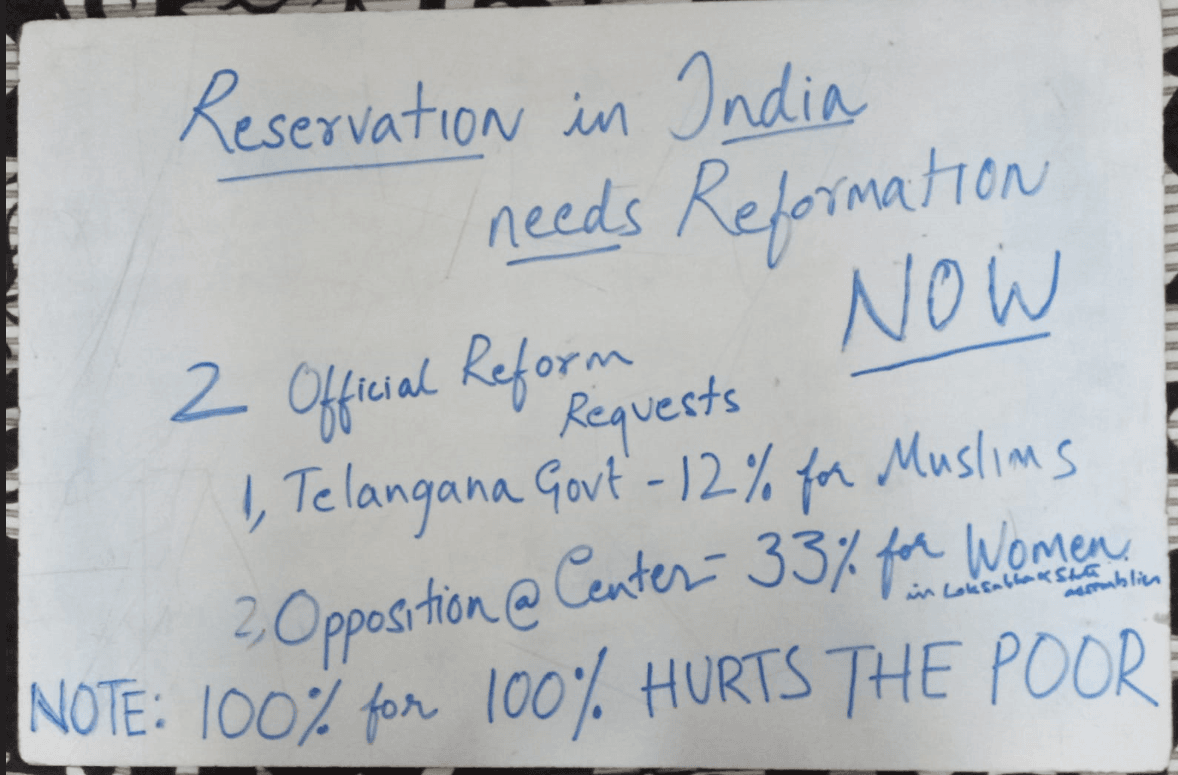 Reservation in India
needs Reformation
NOW
2 Official Reform
Requests
1, Telangana Govt - 12% for Muslims
2, Opposition @ Center - 33% for Women
in Loksabha & State
assemblies
NOTE: 100% for 100% HURTS THE POOR